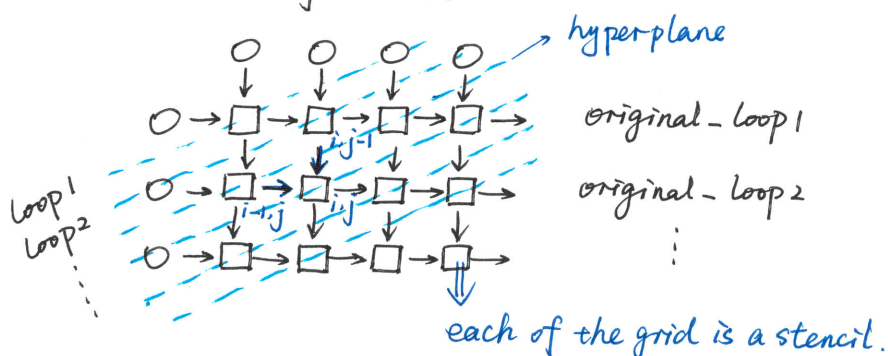 hyperplane
original_loop1
i,j-1
original_loop2
loop1
i-1,j
i,j
loop2
each of the grid is a stencil.